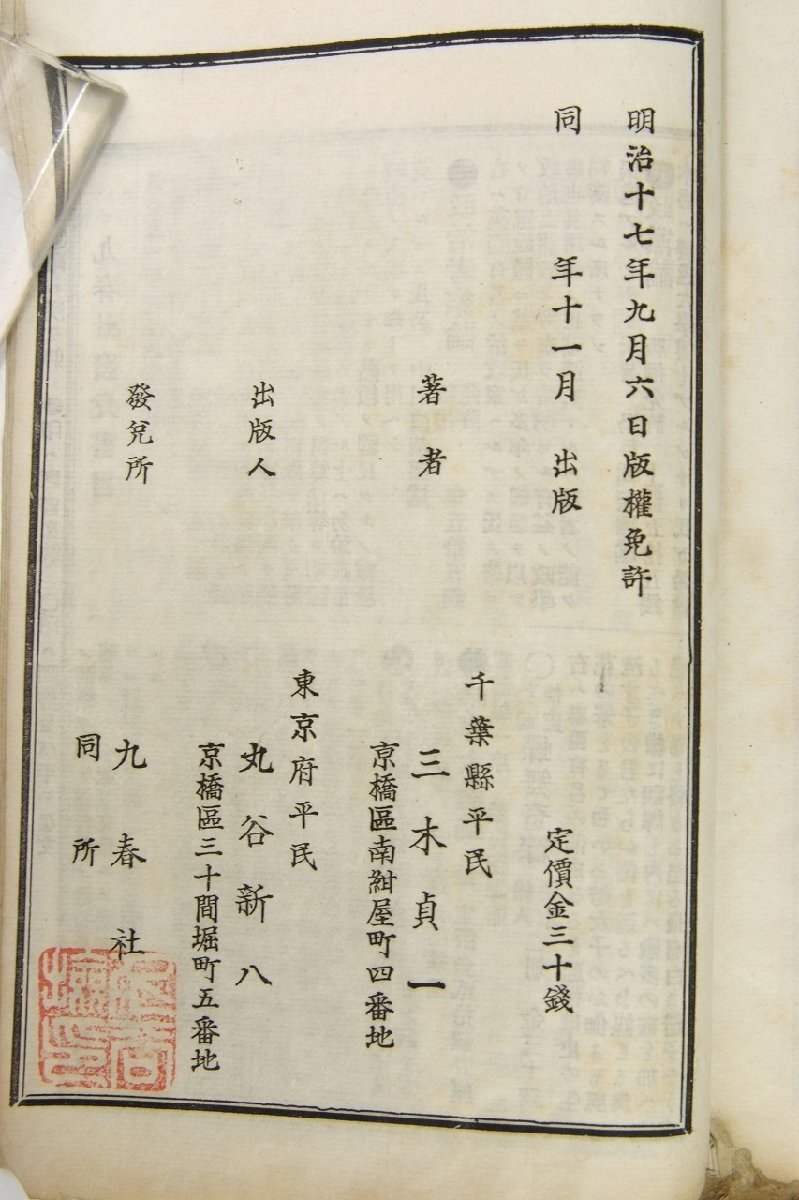 明治十七年九月六日版權免許
同年十一月出版
定價金三十錢
著者
千葉縣平民
三木貞一
京橋區南紺屋町四番地
出版人
東京府平民
丸谷新八
京橋區三十間堀町五番地
發兌所
九春社
同所